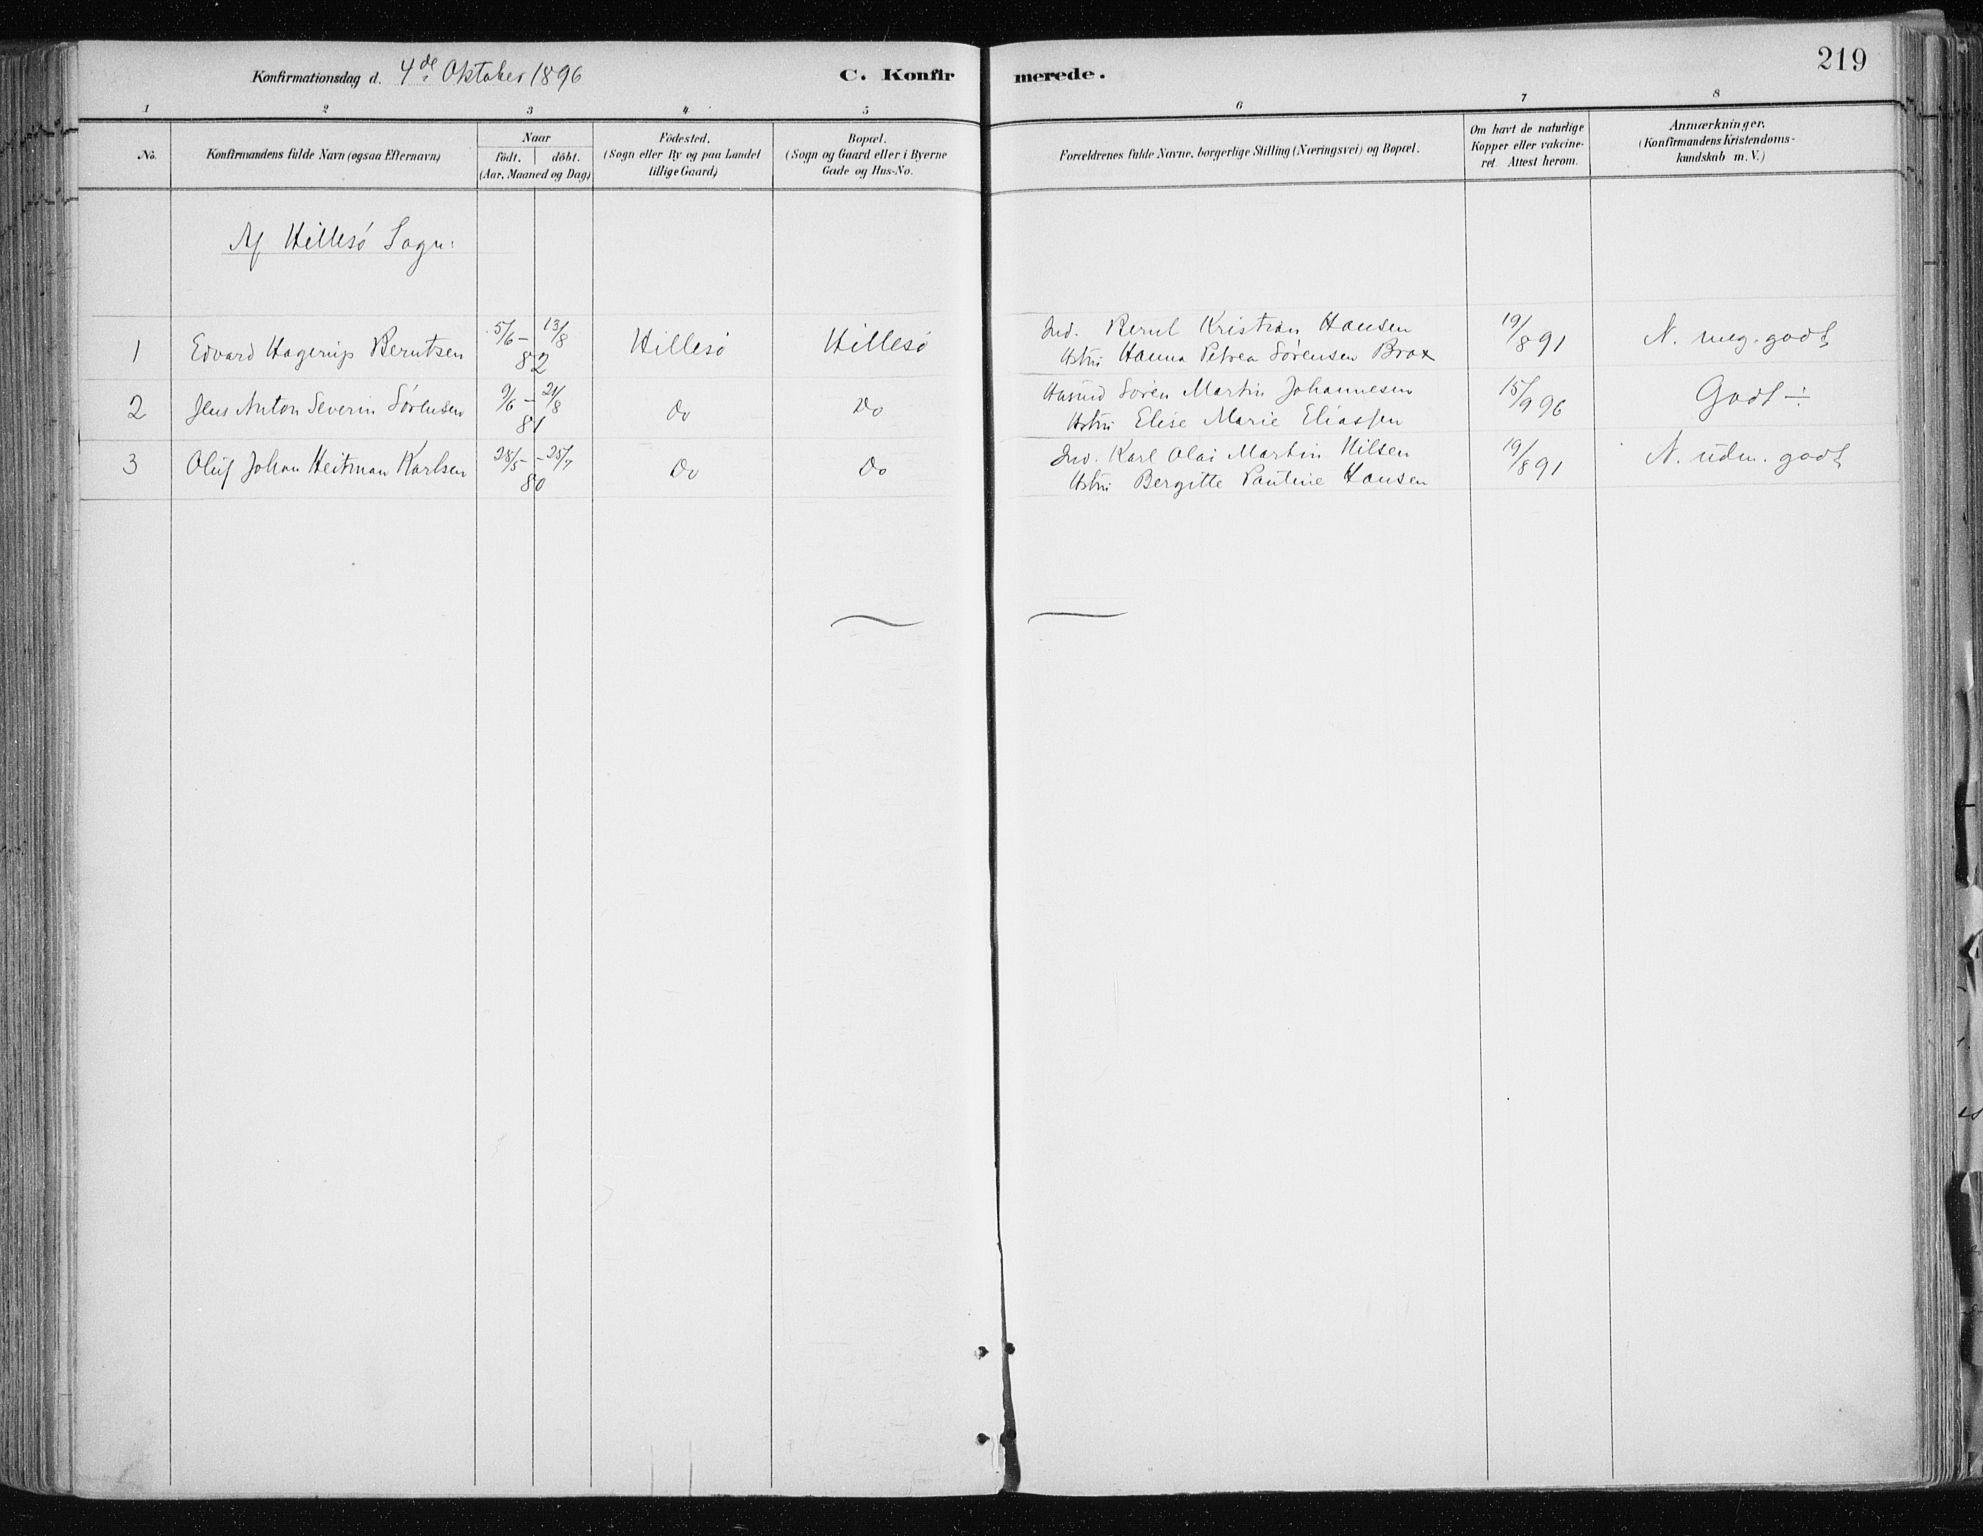 219
Konfirmationsdag d. 4de Oktober 1896
C. Konfirmerede.
1 2 3 4 5 6 7 8
No.
Konfirmandens fulde Navn (ogsaa Efternavn)
Naar
født. døbt.
(Aar, Maaned og Dag)
Fødested.
(Sogn eller By og paa Landet
tillige Gaard)
Bopæl.
(Sogn og Gaard eller i Byerne
Gade og Hus-No.
Forældrenes fulde Navne, borgerlige Stilling (Næringsvei) og Bopæl.
Om havt de naturlige
Kopper eller vakcine-
ret. Attest herom.
Anmærkninger.
(Konfirmandens Kristendoms-
kundskab m. V.)
Af Hillesø Sogn:
1 Edvard Hagerup Berntsen 5/6 – 13/8 82 Hillesø Hillesø Ind. Bernt Kristian Hansen 19/8 91 N. meg. godt
Hstru Hanna Petrea Sørensen Brox
2 Jens Anton Severin Sørensen 9/6 – 21/8 81 Do Do Husmd Søren Martin Johannesen 15/9 96 Godt ÷
Hstru Elise Marie Eliassen
3 Oluf Johan Heitman Karlsen 28/5 – 25/7 80 Do Do Ind. Karl Olai Martin Nilsen 19/8 91 N. udm. godt
Hstru Bergitte Pautine Hansen